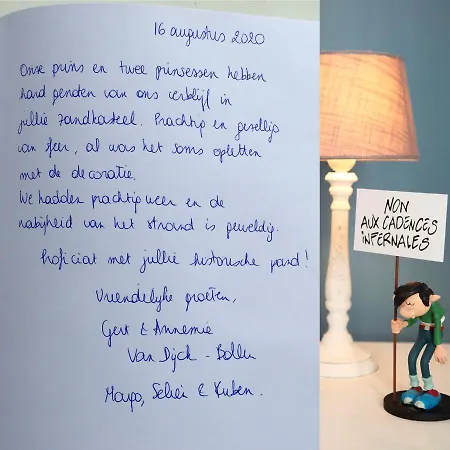 16 augustus 2020
Onze prins en twee prinsessen hebben
hard genoten van ons verblijf in
jullie zandkasteel. Prachtig en gezellig
van sfeer, al was het soms opletten
met de decoratie.
We hadden prachtig weer en de
nabijheid van het strand is geweldig.
Proficiat met jullie historische pand!
Vriendelijke groeten,
Gert & Annemie
Van Dijck - Bollen
& Ruben.
NON
AUX CADENCES
INFERNALES